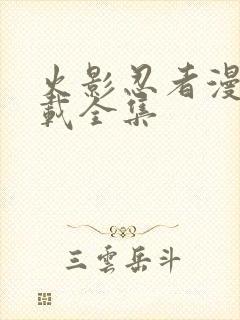 火影忍者漫
载全集
三雲岳斗